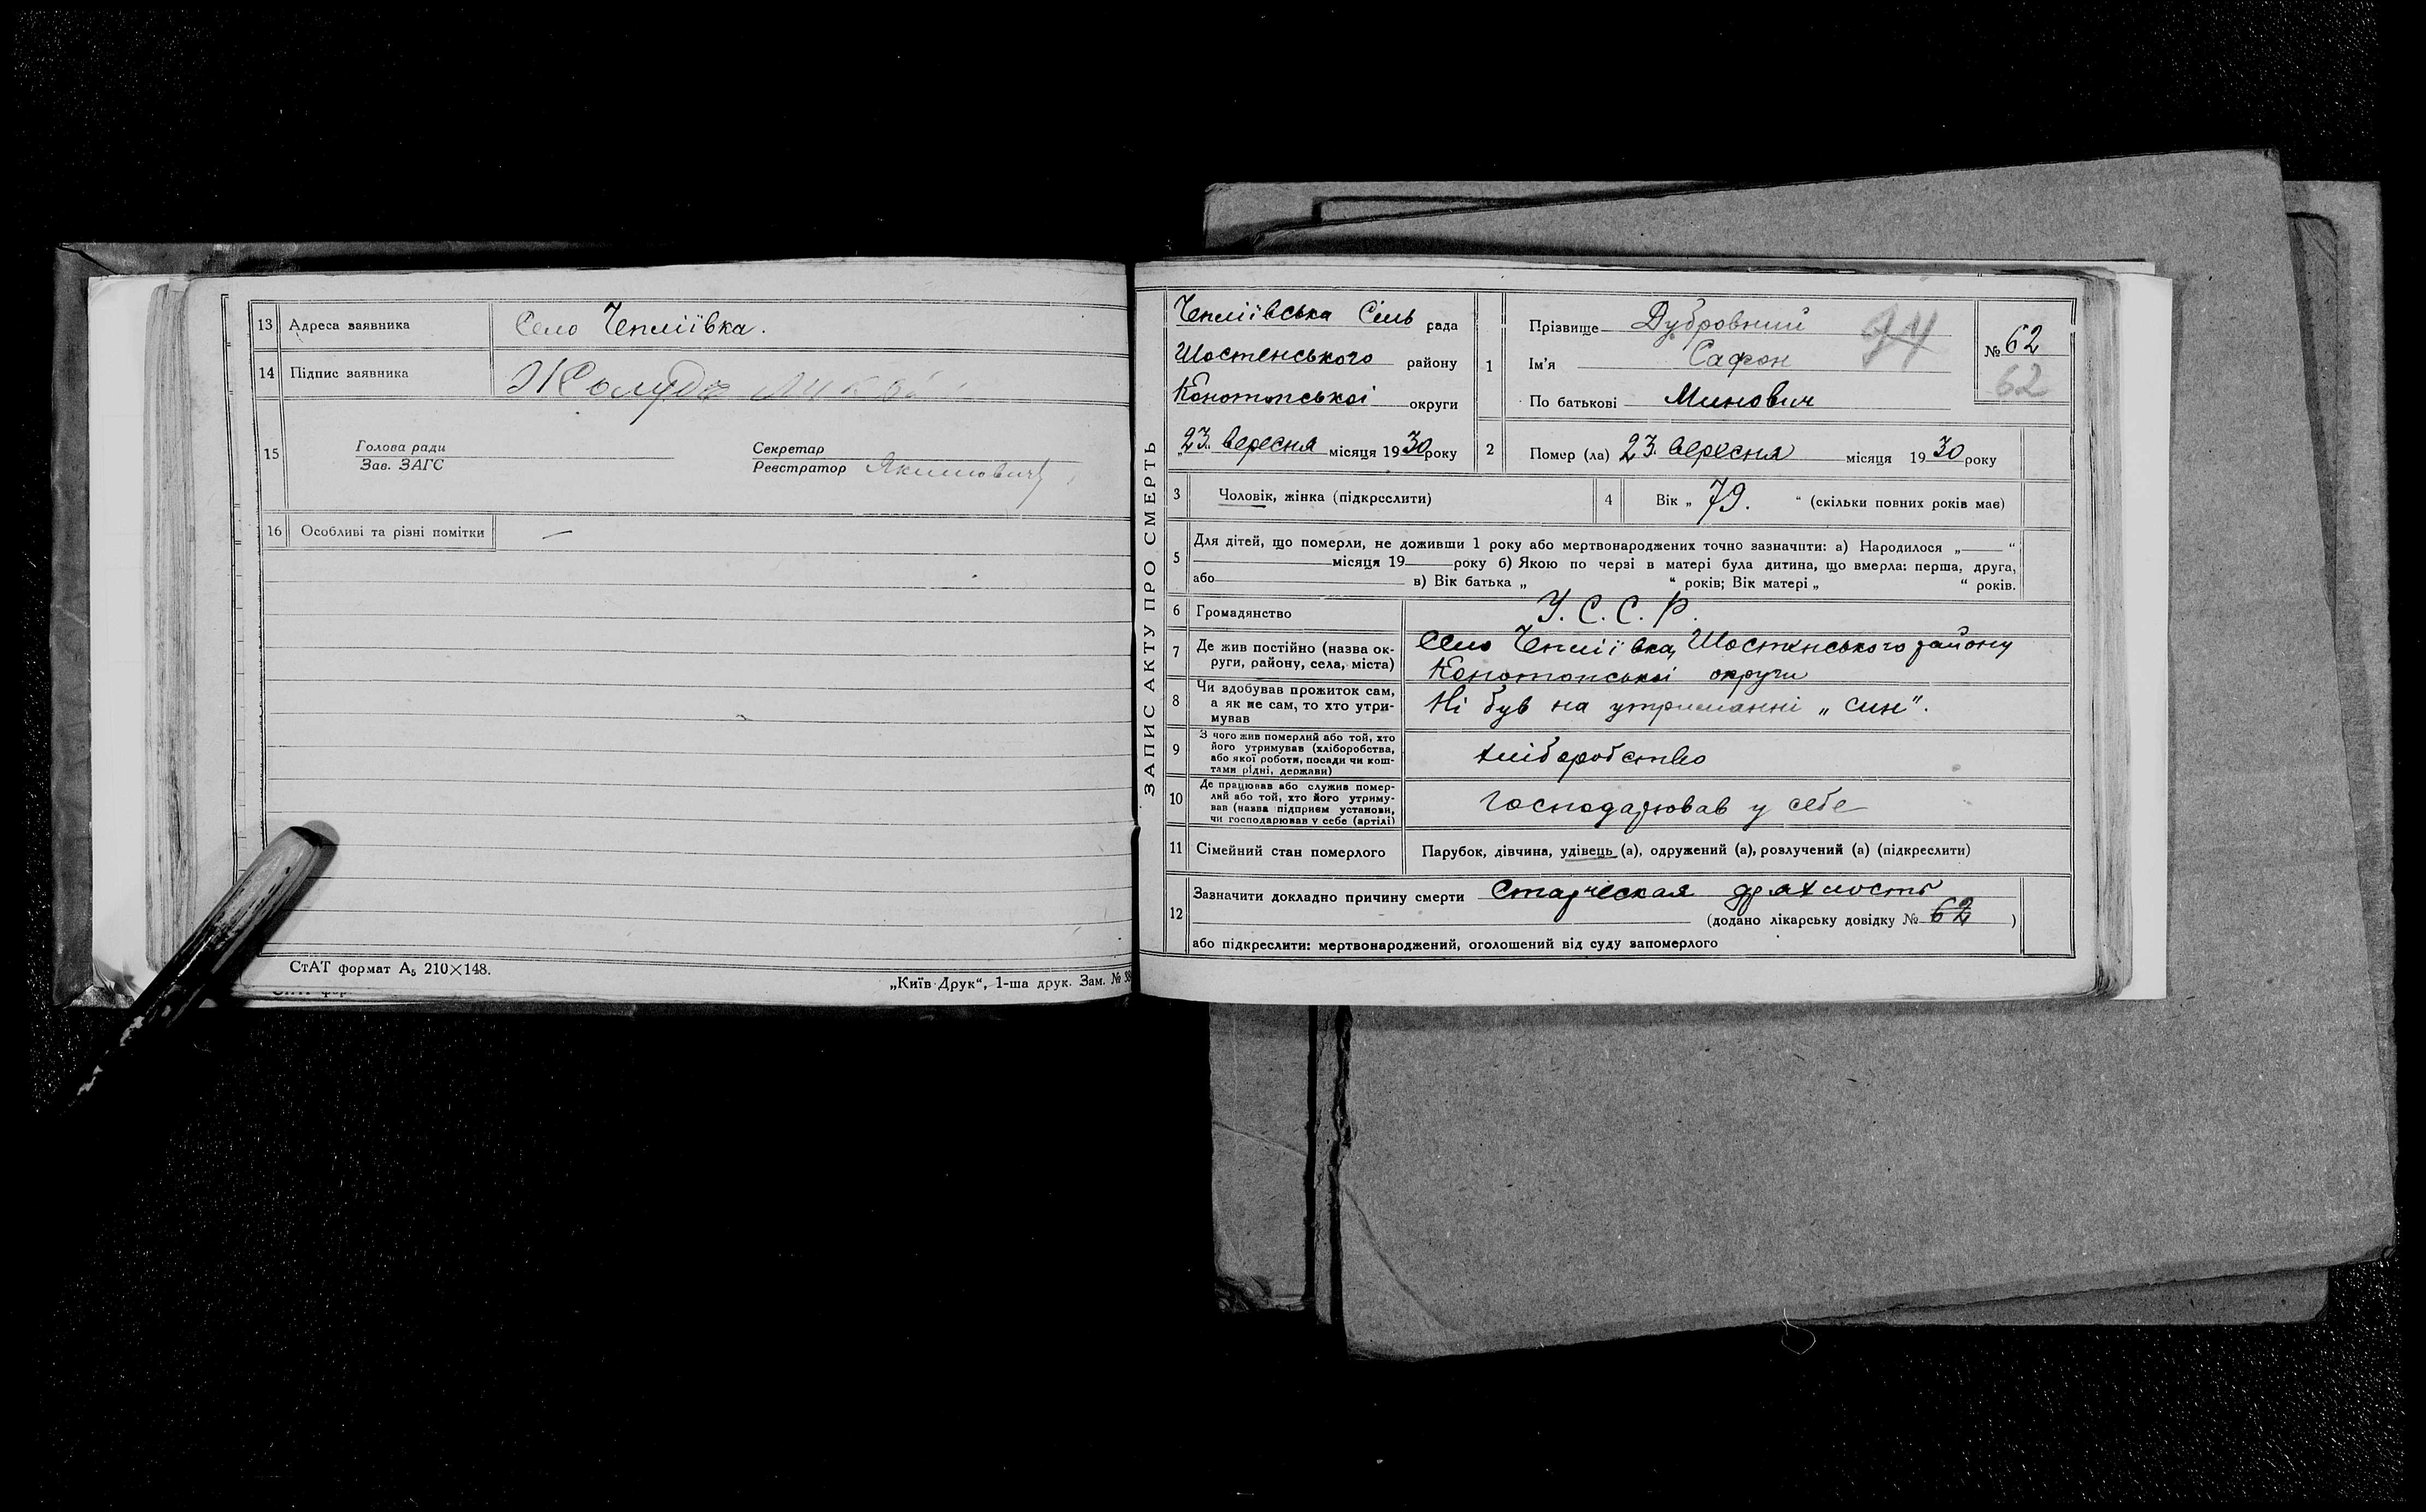 13 Адреса заявника Село Чепліївка.
14 Підпис заявника Жолудь
15 Голова ради
Зав. ЗАГС
Секретар
Реєстратор Якимович
16 Особливі та різні помітки —
СтАТ формат А₅ 210×148.
„Київ-Друк“, 1-ша друк. Зам. №
ЗАПИС АКТУ ПРО СМЕРТЬ
Чепліївська Сіль рада
Шостенського району
Конотопської округи
„23. вересня місяця 1930 року
1 Прізвище Дубровний
Ім'я Сафон
По батькові Минович
94
№ 62
62
2 Помер (ла) 23. вересня місяця 1930 року
3 Чоловік, жінка (підкреслити)
4 Вік „ 79. “ (скільки повних років має)
5 Для дітей, що померли, не доживши 1 року або мертвонароджених точно зазначити: а) Народилося „ — “
місяця 19 року б) Якою по черзі в матері була дитина, що вмерла: перша, друга,
або в) Вік батька „ “ років; Вік матері „ “ років.
6 Громадянство У. С. С. Р.
7 Де жив постійно (назва ок-
руги, району, села, міста)
Село Чепліївка, Шостенського району
Конотопської округи
8 Чи здобував прожиток сам,
а як не сам, то хто утри-
мував
Ні був на утриманні „син".
9 З чого жив померлий або той, хто
його утримував (хліборобства,
або якої роботи, посади чи кош-
тами рідні, держави)
хліборобство
10 Де працював або служив помер-
лий або той, хто його утриму-
вав (назва підприєм установи,
чи господарював у себе (артілі)
Господарював у себе
11 Сімейний стан померлого Парубок, дівчина, удівець (а), одружений (а), розлучений (а) (підкреслити)
12 Зазначити докладно причину смерти Старческая дряхлость
(додано лікарську довідку № 62 )
або підкреслити: мертвонароджений, оголошений від суду запомерлого